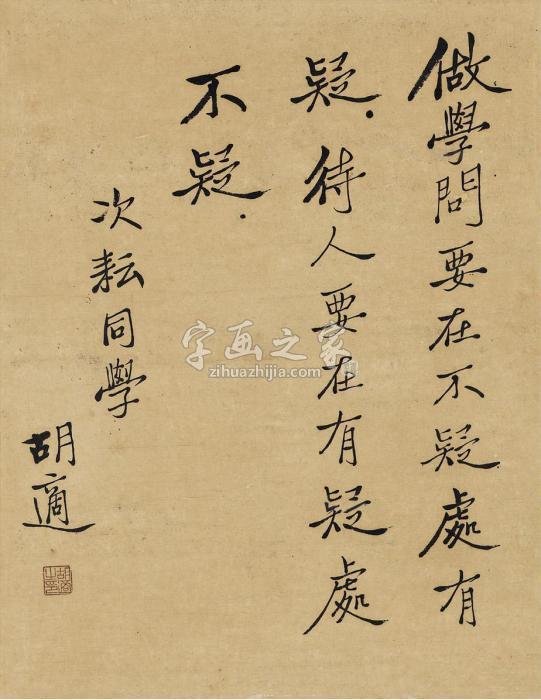 做學問要在不疑處有
疑．待人要在有疑處
不疑．
次耘同學
胡適
胡適之印
字画之家
zihuazhijia.com